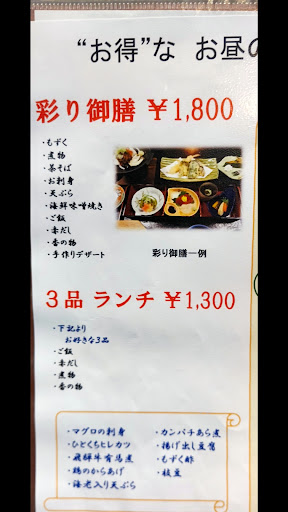 “お得”な お昼の
彩り御膳 ￥1,800
・もずく
・煮物
・茶そば
・お刺身
・天ぷら
・海鮮味噌焼き
・ご飯
・赤だし
・香の物
・手作りデザート
彩り御膳一例
３品 ランチ ￥1,300
・下記より
お好きな3品
・ご飯
・赤だし
・煮物
・香の物
・マグロの刺身
・ひとくちヒレカツ
・飛騨牛有馬煮
・鶏のからあげ
・海老入り天ぷら
・カンパチあら煮
・揚げ出し豆腐
・もずく酢
・枝豆